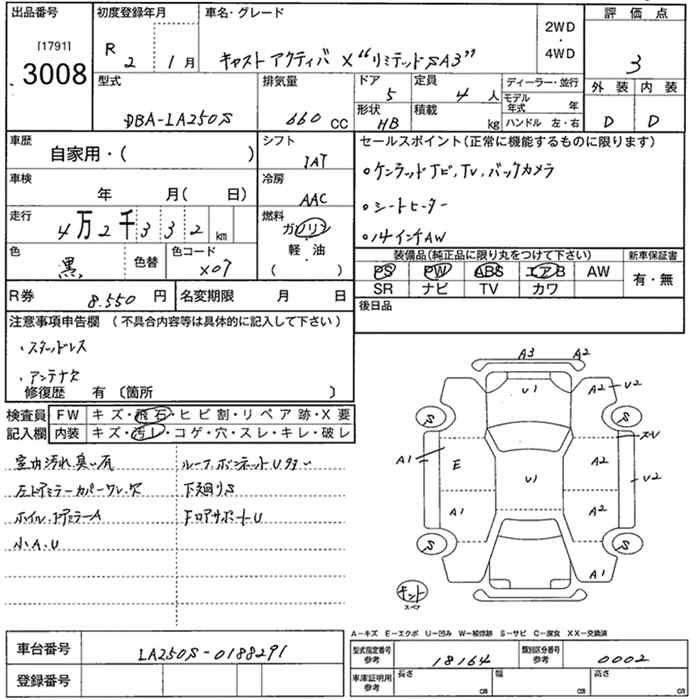 出品番号
[1791]
3008
初度登録年月
R 2 1月
車名・グレード
キャスト アクティバ X "リミテッド SA3"
2WD
・
4WD
評価点
3
外装 内装
D D
型式
DBA-LA250S
排気量
660 CC
ドア 5
定員 4 人
形状 HB
積載 kg
ディーラー・並行
モデル年式 年
ハンドル 左・右
車歴
自家用・( )
シフト
IAT
車検
年 月( 日)
冷房
AAC
走行
4万2千332 km
燃料
ガソリン
軽・油
( )
色
黒
色替
色コード
X07
R券 8.550 円
名変期限 月 日
セールスポイント(正常に機能するものに限ります)
○ケンウッドナビ,TV,バックカメラ
○シートヒーター
○14インチAW
装備品(純正品に限り丸をつけて下さい)
PS PW ABS エアB AW
SR ナビ TV カワ
新車保証書
有・無
後日品
注意事項申告欄(不具合内容等は具体的に記入して下さい)
・スタッドレス
・アンテナ欠
修復歴 有 〔箇所 〕
検査員記入欄
FW キズ・飛石・ヒビ割・リペア跡・X要
内装 キズ・汚レ・コゲ・穴・スレ・キレ・破レ
室内汚れ臭い有
左ドアミラーカバーワレ・欠
ホイル,ドアミラーA
小A.U
ルーフ,ボンネットU多い
下廻りS
Fコアサポート U
A3 A2
U1
A2 U2
S S
A1
E
スレ
A2
U2
U1
A1
A2
S S
A1
キット
スペア
A-キズ E-エクボ U-凹み W-補修跡 S-サビ C-腐食 XX-交換済
車台番号
LA250S-0188291
登録番号
型式指定番号 参考
18164
類別区分番号 参考
0002
車庫証明用 参考
長さ cm
幅 cm
高さ cm